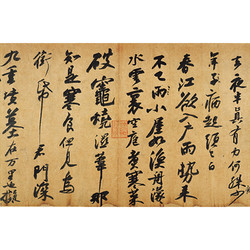 去夜半真有力何殊少
年子病起須已白
春江欲入戶雨勢來
不已雨小屋如漁舟濛濛
水雲裏空庖煮寒菜
破竈燒濕葦那
知是寒食但見烏
銜帋君門深
九重墳墓在万里也擬